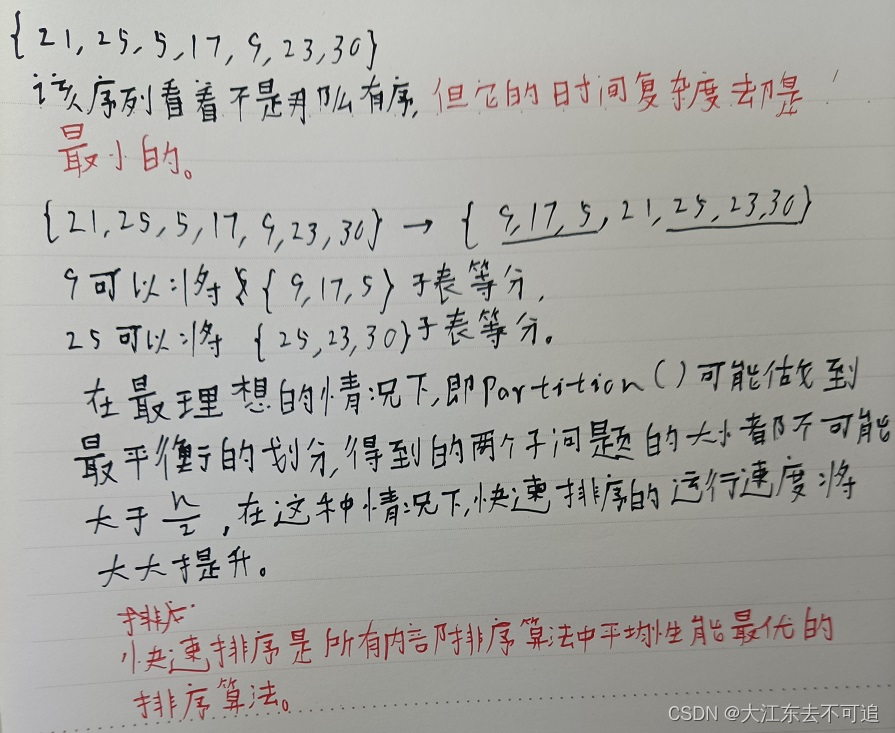 {21, 25, 5, 17, 9, 23, 30}
该序列看着不是那么有序, 但它的时间复杂度却是
最小的。
{21, 25, 5, 17, 9, 23, 30} → { 9, 17, 5, 21, 25, 23, 30}
9可以将{ 9, 17, 5} 子表等分,
25可以将 {25, 23, 30}子表等分。
在最理想的情况下,即Partition()可能做到
最平衡的划分,得到的两个子问题的大小都不可能
大于 n/2 ,在这种情况下,快速排序的运行速度将
大大提升。
快速排序是所有内部排序算法中平均性能最优的
排序算法。
CSDN @大江东去不可追